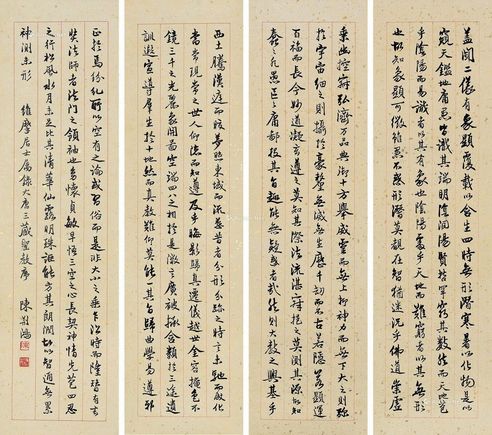 蓋聞二儀有象顯覆載以含生四時無形潛寒暑以化物是以
窺天鑑地庸愚皆識其端明陰洞陽賢哲罕窮其數然而天地苞
乎陰陽而易識者以其有象也陰陽處乎天地而難窮者以其無形
也故知象顯可徵雖愚不惑形潛莫覩在智猶迷況乎佛道崇虛
乘幽控寂弘濟萬品典御十方舉威靈而無上抑神力而無下大之則彌
於宇宙細之則攝於毫釐無滅無生歷千劫而不古若隱若顯運
百福而長今妙道凝玄遵之莫知其際法流湛寂挹之莫測其源故知
蠢蠢凡愚區區庸鄙投其旨趣能無疑惑者哉然則大教之興基乎
西土騰漢庭而皎夢照東域而流慈昔者分形分跡之時言未馳而成化
當常現常之世人仰德而知遵及乎晦影歸真遷儀越世金容掩色不
鏡三千之光麗象開圖空端四八之相於是微言廣被拯含類於三途遺
訓遐宣導群生於十地然而真教難仰莫能一其旨歸曲學易遵邪
正於焉紛糾所以空有之論或習俗而是非大小之乘乍沿時而隆替有玄
奘法師者法門之領袖也幼懷貞敏早悟三空之心長契神情先苞四忍
之行松風水月未足比其清華仙露明珠詎能方其朗潤故以智通無累
神測未形 維摩居士屬錄大唐三藏聖教序 陳